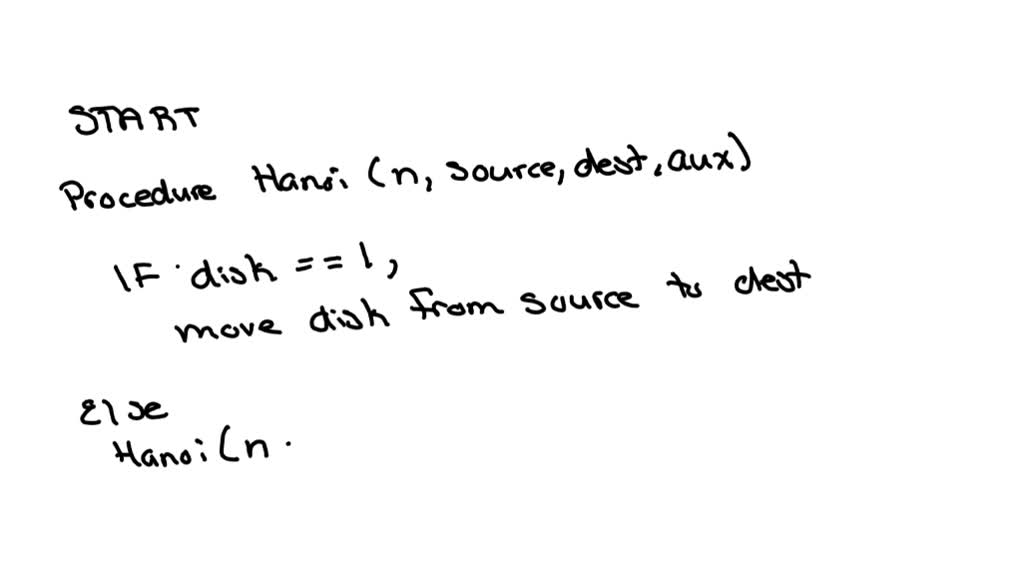 START
Procedure Hanoi (n, source, dest, aux)
IF disk == 1,
move disk from source to dest
Else
Hanoi (n